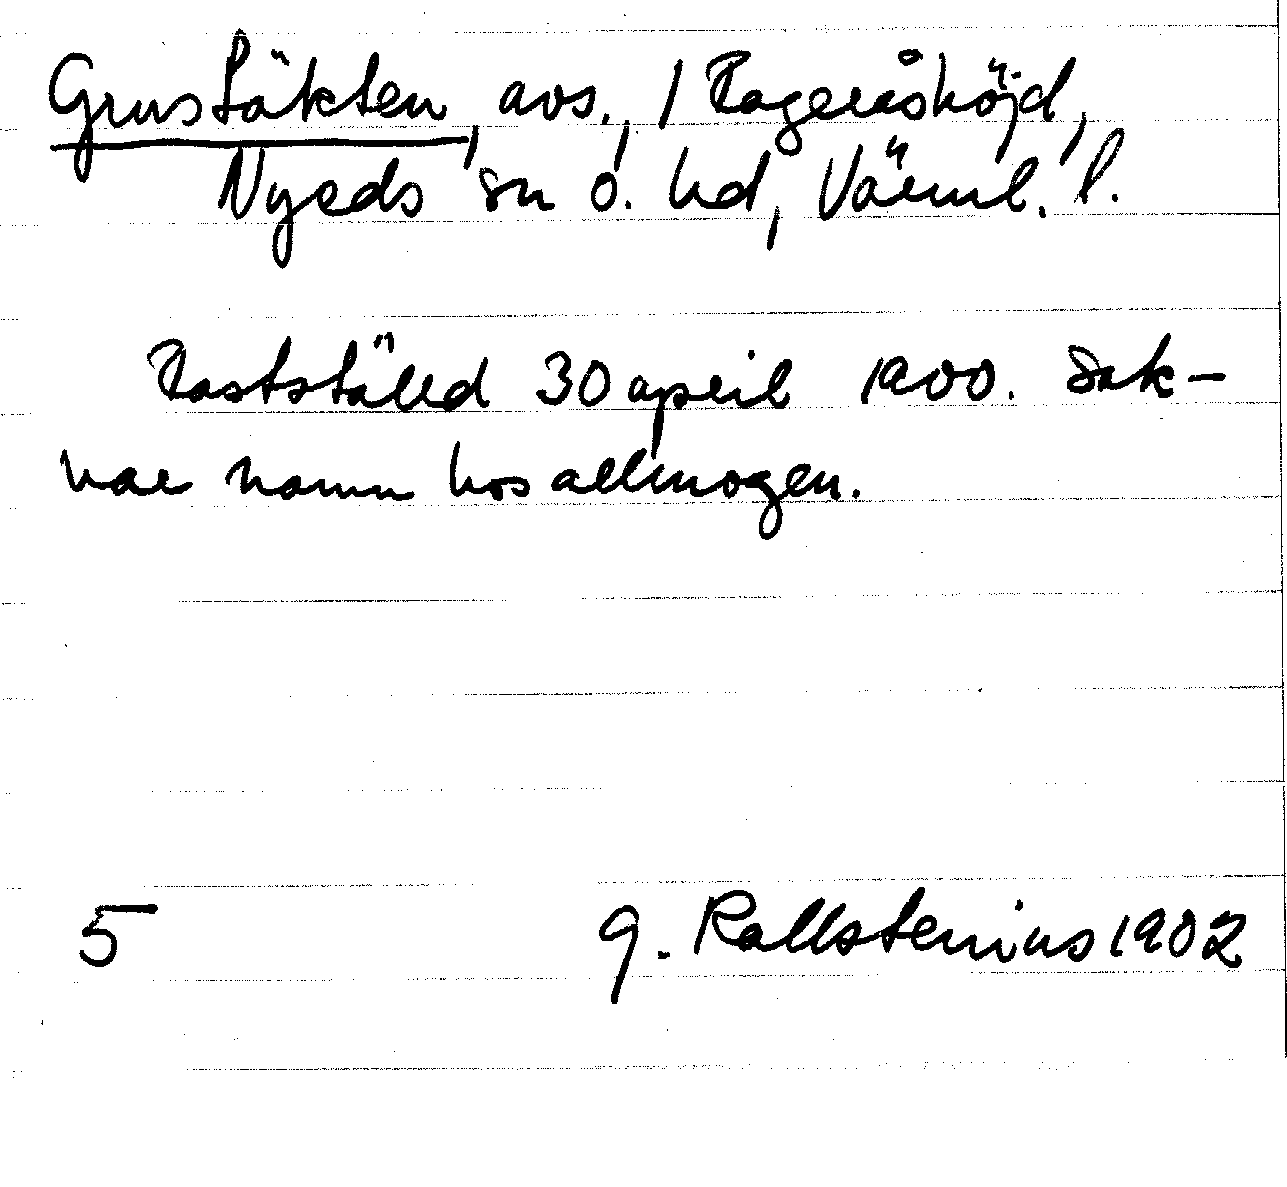 Grustäkten, avs., / Rageråshöjd,
Nyeds sn o. hd, Värml. l.
Fastställd 30 april 1900. Sak-
nar namn hos allmogen.
5 G. Kallstenius 1902